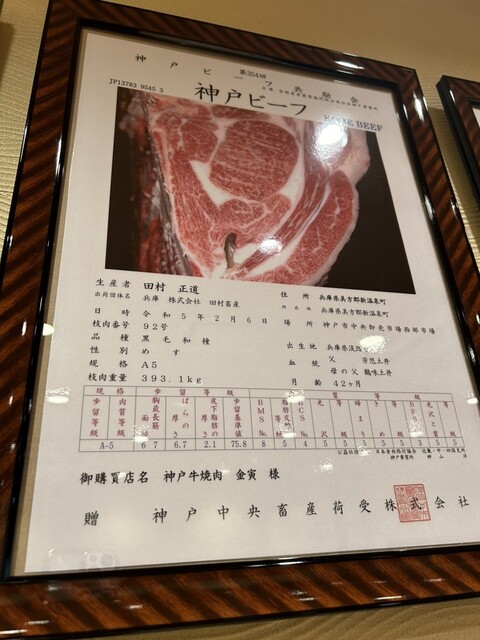 神戸ビーフ共励会
第354回
JP13783 9540 3
神戸ビーフ
KOBE BEEF
生産者 田村 正道
出荷団体名 兵庫 株式会社 田村畜産
住所 兵庫県美方郡新温泉町
兵庫県美方郡新温泉町
日時 令和5年2月6日
場所 神戸市中央卸売市場西部市場
枝肉番号 92号
品種 黒毛和種
出生地 兵庫県淡路
性別 めす
血統 父 芳悠土井
規格 A5
母の父 鶴味土井
枝肉重量 393.1kg
月齢 42ヶ月
規格 歩留等級 肉質等級
歩留等級 肉質等級 胸最長筋面積 ばらの厚さ 皮下脂肪の厚さ 歩留基準値 BMS No. 脂肪交雑 BCS No. 光沢 等級 締まり きめ 等級 BFS No. 光沢と質 等級
A-5 67 6.7 2.1 75.8 8 5 4 5 5 5 5 5 3 5 5
御購買店名 神戸牛焼肉 金寅 様
贈 神戸中央畜産荷受株式会社